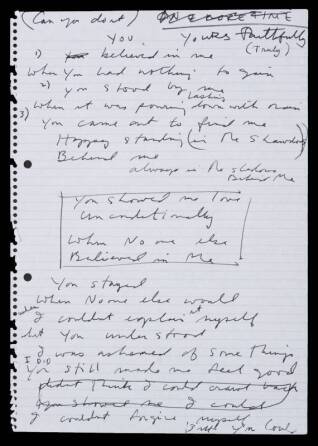 (Can you dont) ONE MORE TIME
YOU, YOURS Faithfully
(Truly)
1) You believed in me
When You had nothing to gain
2) You stood by me
Lashing
3) When it was pouring down with rain
You came out to find me
Happy standing (in the shadows)
Behind me
always in the shadows
Behind Me
You showed me love
Unconditionally
When No one else
Believed in Me
You stayed
When No one else would
I couldnt explain it myself
but You understood
I was ashamed of some things
I DID
You still made me feel good
didnt think I could crawl back
You showed me I could
I couldnt forgive myself